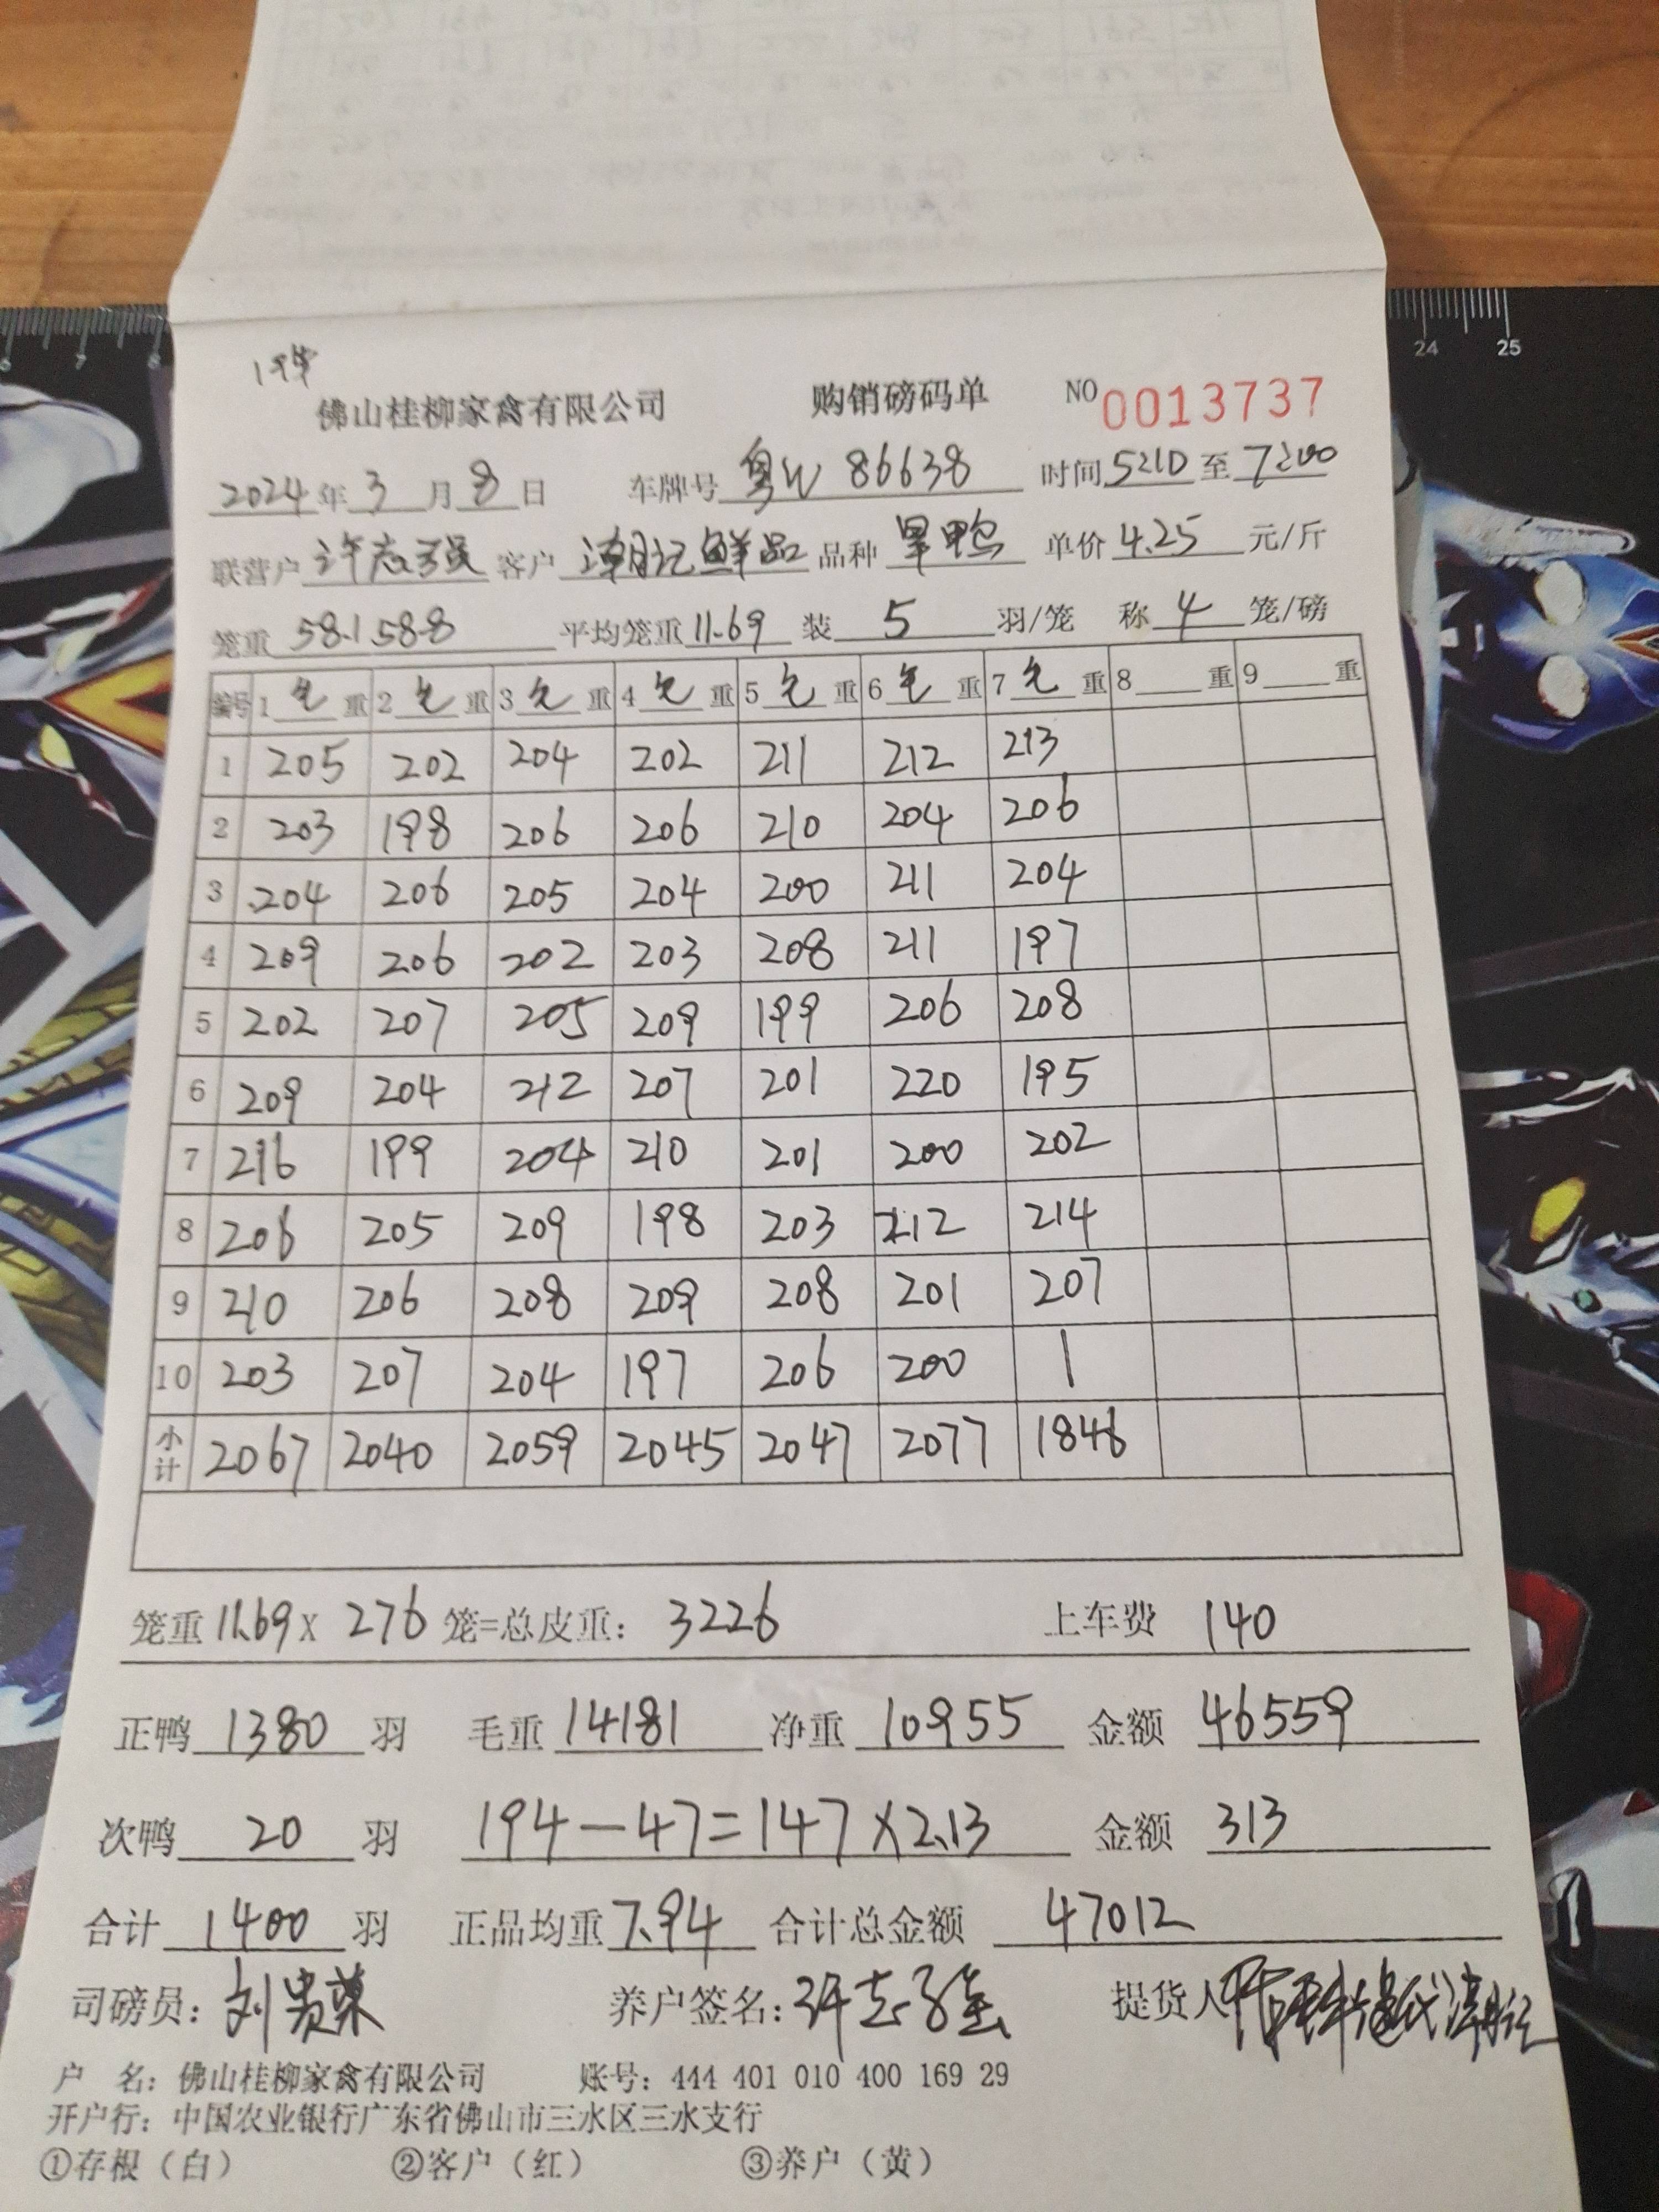 佛山桂柳家禽有限公司 购销磅码单 NO 0013737
2024年3月8日 车牌号 粤W 86638 时间 5:10 至 7:00
联营户 许志强 客户 潮记鲜品 品种 旱鸭 单价 4.25 元/斤
笼重 58.1 58.8 平均笼重 11.69 装 5 羽/笼 称 4 笼/磅
编号 1 毛 重 2 毛 重 3 毛 重 4 毛 重 5 毛 重 6 毛 重 7 毛 重 8 重 9 重
1 205 202 204 202 211 212 213
2 203 198 206 206 210 204 206
3 204 206 205 204 200 211 204
4 209 206 202 203 208 211 197
5 202 207 205 209 199 206 208
6 209 204 212 207 201 220 195
7 216 199 204 210 201 200 202
8 206 205 209 198 203 212 214
9 210 206 208 209 208 201 207
10 203 207 204 197 206 200
小计 2067 2040 2059 2045 2047 2077 1846
笼重 11.69 X 276 笼=总皮重: 3226 上车费 140
正鸭 1380 羽 毛重 14181 净重 10955 金额 46559
次鸭 20 羽 194-47=147×2.13 金额 313
合计 1400 羽 正品均重 7.94 合计总金额 47012
司磅员: 刘贵荣 养户签名: 许志强 提货人
户 名: 佛山桂柳家禽有限公司 账号: 444 401 010 400 169 29
开户行: 中国农业银行广东省佛山市三水区三水支行
①存根（白） ②客户（红） ③养户（黄）